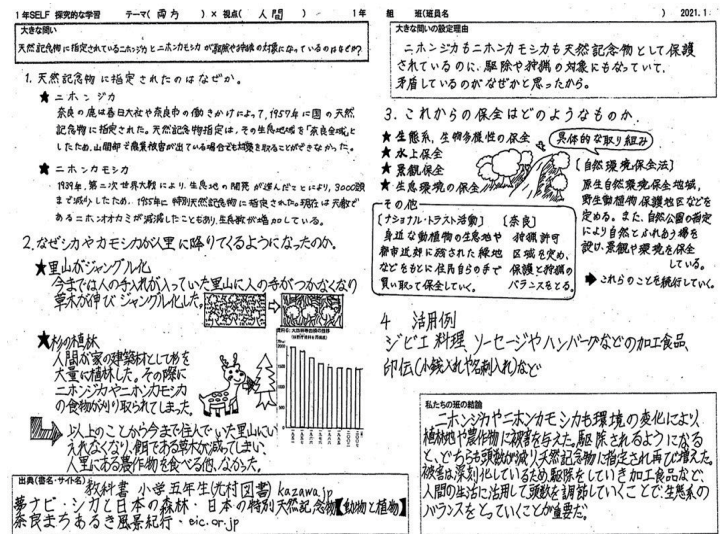 1年SELF 探究的な学習 テーマ( 両方 )×視点( 人間 ) 1年 組 班(班員名 ) 2021.1
大きな問い
天然記念物に指定されているニホンジカとニホンカモシカが駆除や狩猟の対象になっているのはなぜか?
1. 天然記念物に指定されたのはなぜか。
★ニホンジカ
奈良の鹿は春日大社や奈良市の働きかけによって、1957年に国の天然
記念物に指定された。天然記念物指定は、その生息地域を「奈良全域」と
したため、山間部で農業被害が出ている場合でも対策を取ることができなかった。
★ニホンカモシカ
1939年、第二次世界大戦により、生息地の開発が進んだことにより、3000頭
まで減少したため、1955年に特別天然記念物に指定された。現在は天敵で
あるニホンオオカミが減滅したこともあり、生息数が増加している。
2. なぜシカやカモシカが人里に降りてくるようになったのか。
★里山がジャングル化
今までは人の手入れが入っていた里山に人の手がつかなくなり
草木が伸びジャングル化した。
★杉の植林
人間が家の建築材として杉を
大量に植林した。その際に
ニホンジカやニホンカモシカ
の食物が刈り取られてしまった。
2500
2000
1500
1000
500
0
以上のことから今まで住んでいた里山にい
えれなくなり、餌である草木が減ってしまい、
人里にある農作物を食べる他、なかった。
出典(書名・サイト名)
教科書 小学五年生(光村図書) kazawa.jp
夢ナビ・シカと日本の森林・日本の特別天然記念物【動物と植物】
奈良まちあるき風景紀行・eic.or.jp
大きな問いの設定理由
ニホンジカもニホンカモシカも天然記念物として保護
されているのに、駆除や狩猟の対象にもなっていて、
矛盾しているのがなぜかと思ったから。
3. これからの保全はどのようなものか
★生態系、生物多様性の保全
★水上保全
★景観保全
★生息環境の保全
具体的な取り組み
[自然環境保全法]
原生自然環境保全地域、
野生動植物保護地区などを
定める。また、自然公園の指定
により自然とふれあう場を
設け、景観や環境を保全
している。
➡これらのことを続行していく。
その他
[ナショナル・トラスト活動]
身近な動植物の生息地や
都市近郊に残された緑地
などをもとに住民自らの手で
買い取って保全していく。
[奈良]
狩猟許可
区域を定め、
保護と狩猟の
バランスをとる。
4 活用例
ジビエ料理 ソーセージやハンバーグなどの加工食品、
印伝(小銭入れや名刺入れ)など
私たちの班の結論
ニホンジカやニホンカモシカも環境の変化により、
植林地や農作物に被害を与えた。駆除されるようになる
と、どちらも頭数が減り天然記念物に指定され再び増えた。
被害は深刻化しているため、駆除をしていき加工食品など、
人間の生活に活用して頭数を調節していくことで生態系の
バランスをとっていくことが重要だ。